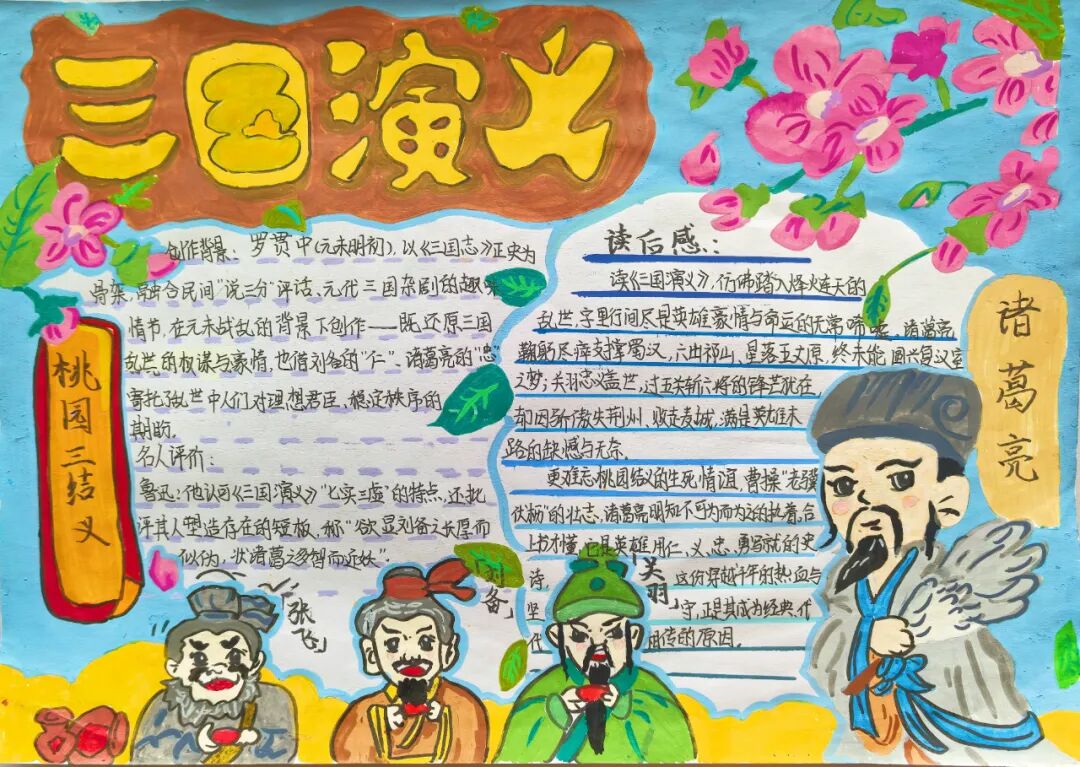 三国演义
桃园三结义
创作背景：罗贯中(元末明初)，以《三国志》正史为
骨架，融合民间"说三分"评话、元代三国杂剧的趣味
情节，在元末战乱的背景下创作——既还原三国
乱世的权谋与豪情，也借刘备的"仁"、诸葛亮的"忠"
寄托乱世中人们对理想君臣、稳定秩序的
期盼。
名人评价：
鲁迅：他认可《三国演义》"七实三虚"的特点、还批
评其人塑造存在的短板，称"欲显刘备之长厚而
似伪，状诸葛之多智而近妖"。
读后感：
读《三国演义》，仿佛踏入烽火连天的
乱世，字里行间尽是英雄豪情与命运的无常唏嘘。诸葛亮
鞠躬尽瘁支撑蜀汉，六出祁山，星落五丈原，终未能圆兴复汉室
之梦；关羽忠义盖世，过五关斩六将的锋芒犹在，
却因骄傲失荆州、败走麦城，满是英雄末
路的缺憾与无奈。
更难忘桃园结义的生死情谊，曹操"老骥
伏枥"的壮志，诸葛亮明知不可为而为之的执着。合
上书才懂，它是英雄用仁、义、忠、勇写就的史
诗，这份穿越千年的热血与
坚守，正是其成为经典、代
代相传的原因。
诸葛亮
张飞
刘备
关羽